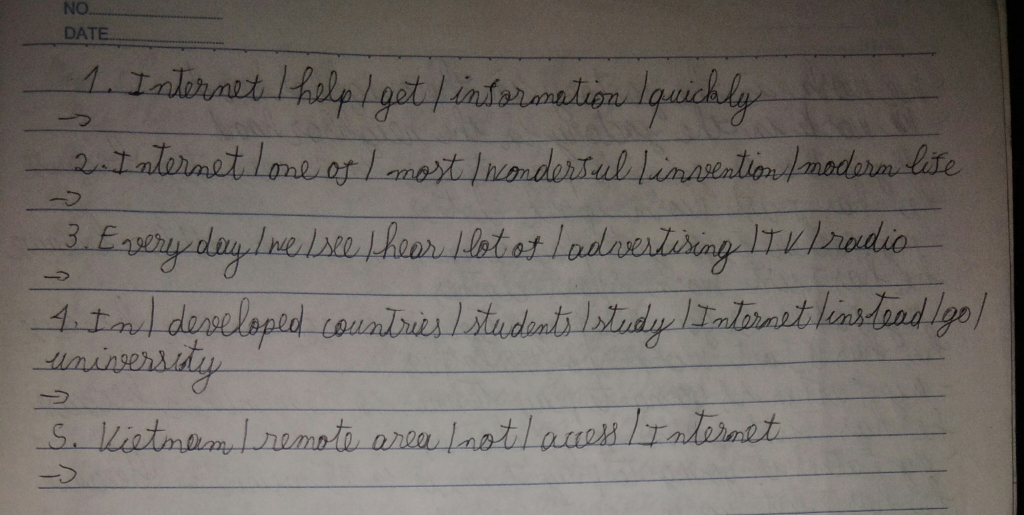 NO
DATE
1. Internet / help / get / information / quickly
→
2. Internet / one of / most / wonderful / invention / modern life
→
3. Every day / we / see / hear / lot of / advertising / TV / radio
→
4. In / developed countries / students / study / Internet / instead / go /
university
→
5. Vietnam / remote area / not / access / Internet
→